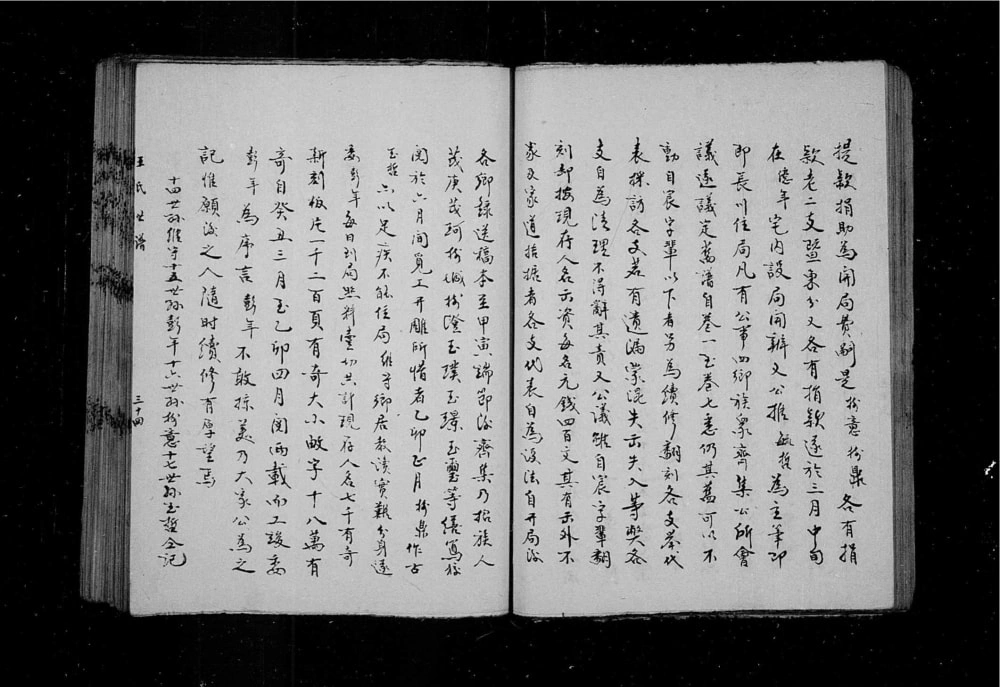 提款捐助為開局費嗣是於意於鼎各有捐
款老二支暨東分又各有捐款遂於三月中旬
在億年宅內設局開辦又公推毓哲為主筆即
即長川住局凡有公事四鄉族眾齊集公所會
議遂議定舊譜自卷一至卷七悉仍其舊可以不
動自宸字輩以下者另為續修翻刻各支舉代
表採訪各支若有遺漏蒙混失出失入等弊各
支自為清理不得辭其責又公議雖自宸字輩翻
刻却按現存人名出資每名元錢四百文其有出外不
家及家道拮据者各支代表自為設法自開局後
各鄉錄送稿本至甲寅端節後齊集乃招族人
茂庚茂珂於城於澄玉璞玉璟玉璽等繕寫校
閱於六月間覓工開雕所惜者乙卯正月於鼎作古
玉哲亦以足疾不能住局維守鄉居教讀實難分身遂
委彭年每日到局照料壹切共計現存人名七千有奇
新刻板片一千二百頁有奇大小畝字十八萬有
奇自癸丑三月至乙卯四月閱兩載而工竣委
彭年為序言彭年不敢掠美乃大家公為之
記惟願後之人隨時續修有厚望焉
十四世孫維守十五世孫彭年十六世孫於意十七世孫玉哲仝記
王氏世譜
三十四